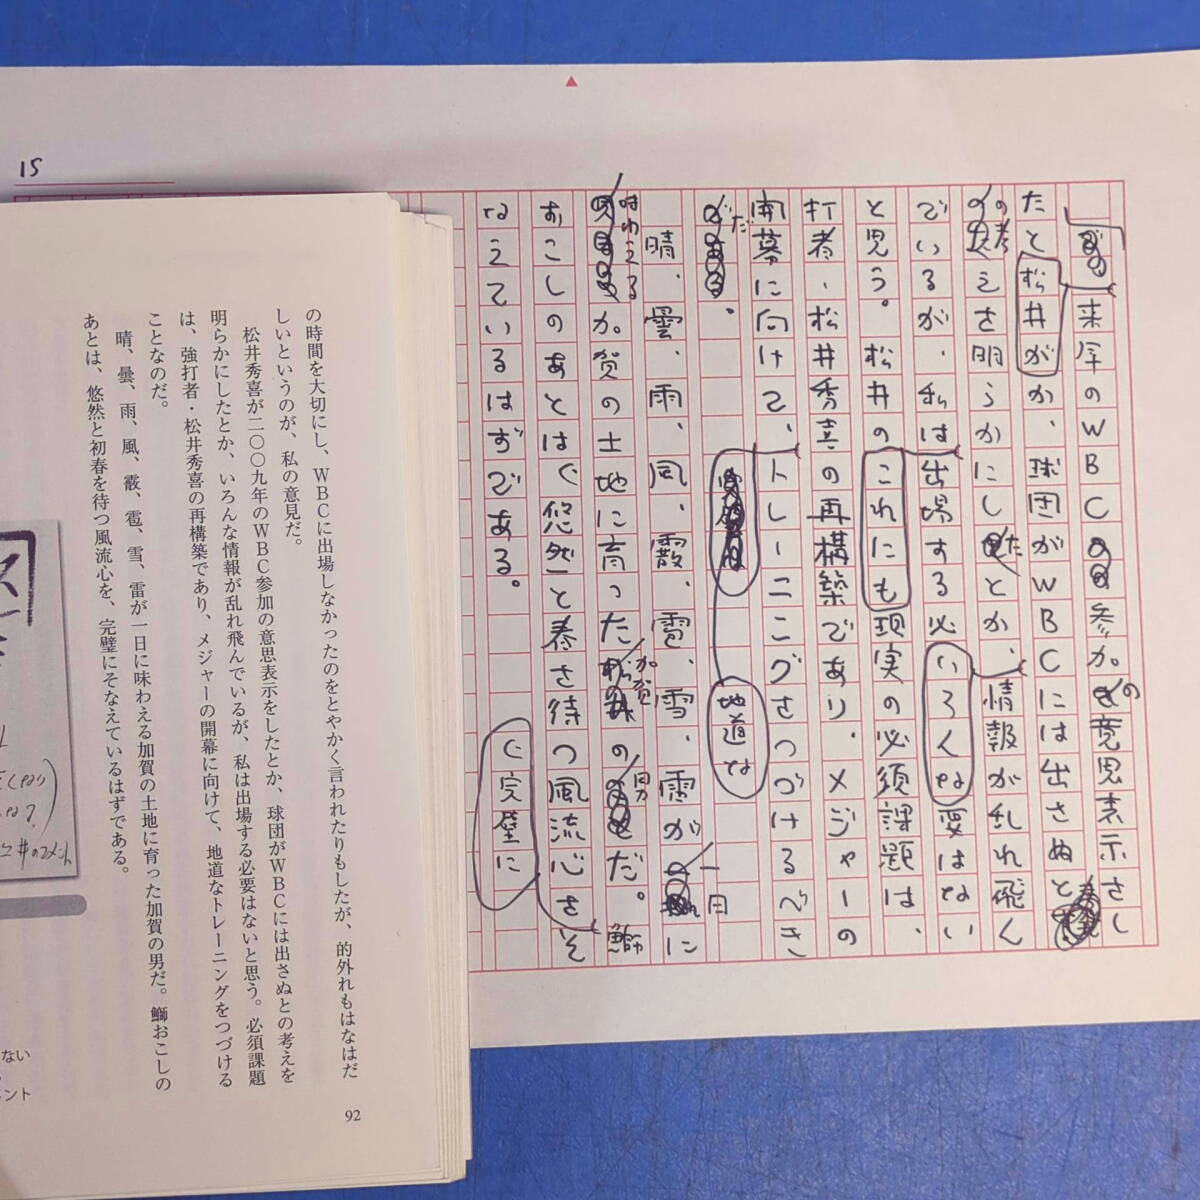 15
来年のWBC参加の意思表示をし
たとか、球団がWBCには出さぬと
の考えを明らかにしたとか、情報が乱れ飛ん
でいるが、私は出場する必要はない
と思う。松井の現実の必須課題は、
打者、松井秀喜の再構築であり、メジャーの
開幕に向けて、トレーニングをつづけるべき
だ。
晴、曇、雨、風、霰、雹、雪、雷が一日に
味わえる加賀の土地に育った加賀の男だ。鰤
おこしのあとは悠然と春を待つ風流心をそ
なえているはずである。
松井が
これにも
いろんな
地道な
完璧に
の時間を大切にし、WBCに出場しなかったのをとやかく言われたりもしたが、的外れもはなはだ
しいというのが、私の意見だ。
松井秀喜が二〇〇九年のWBC参加の意思表示をしたとか、球団がWBCには出さぬとの考えを
明らかにしたとか、いろんな情報が乱れ飛んでいるが、私は出場する必要はないと思う。必須課題
は、強打者・松井秀喜の再構築であり、メジャーの開幕に向けて、地道なトレーニングをつづける
ことなのだ。
晴、曇、雨、風、霰、雹、雪、雷が一日に味わえる加賀の土地に育った加賀の男だ。鰤おこしの
あとは、悠然と初春を待つ風流心を、完璧にそなえているはずである。
92
ない